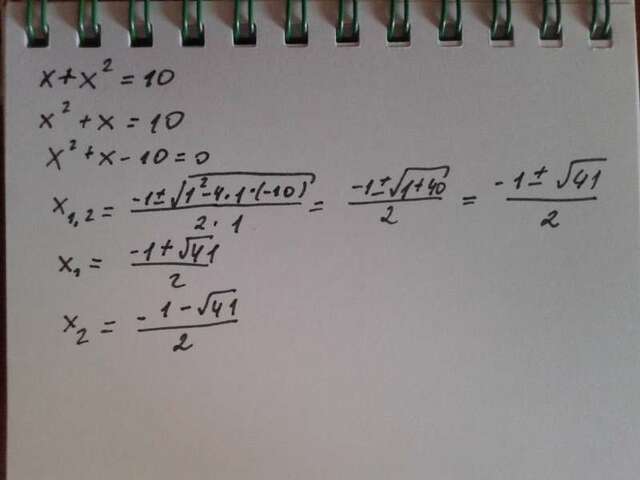 x+x²=10
x²+x=10
x²+x-10=0
x₁,₂= (-1±√(1²-4·1·(-10)))/(2·1) = (-1±√(1+40))/2 = (-1±√41)/2
x₁= (-1+√41)/2
x₂= (-1-√41)/2